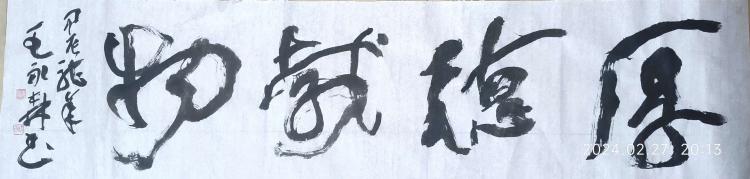 厚德载物
甲辰龙年
毛永森书
2024.02.27 20:13